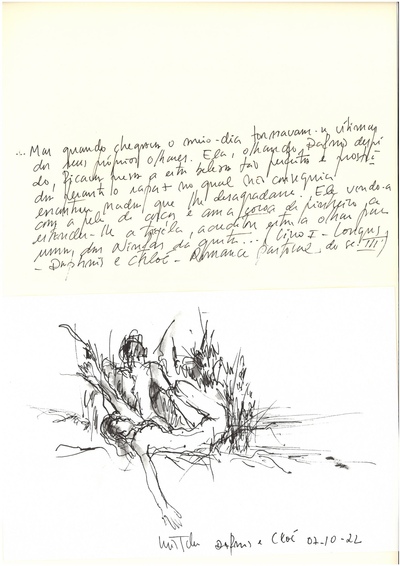 ... Mas quando chegava o meio-dia tornavam-se vítimas
dos seus próprios olhares. Ela, olhando Dafnis despi
do, ficava presa a esta beleza tão perfeita e
perante o rapaz no qual não conseguia
encontrar nada que lhe desagradasse. Ele vendo-a
com a pele de corça e a coroa de pinheiro, a
estender-lhe a tigela, acreditava estar a olhar para
uma das Ninfas da gruta... (Livro I - Longus,
- Daphnis e Chloé - Romance pastoral, do séc III)
Dafnis e Cloé 07-10-22